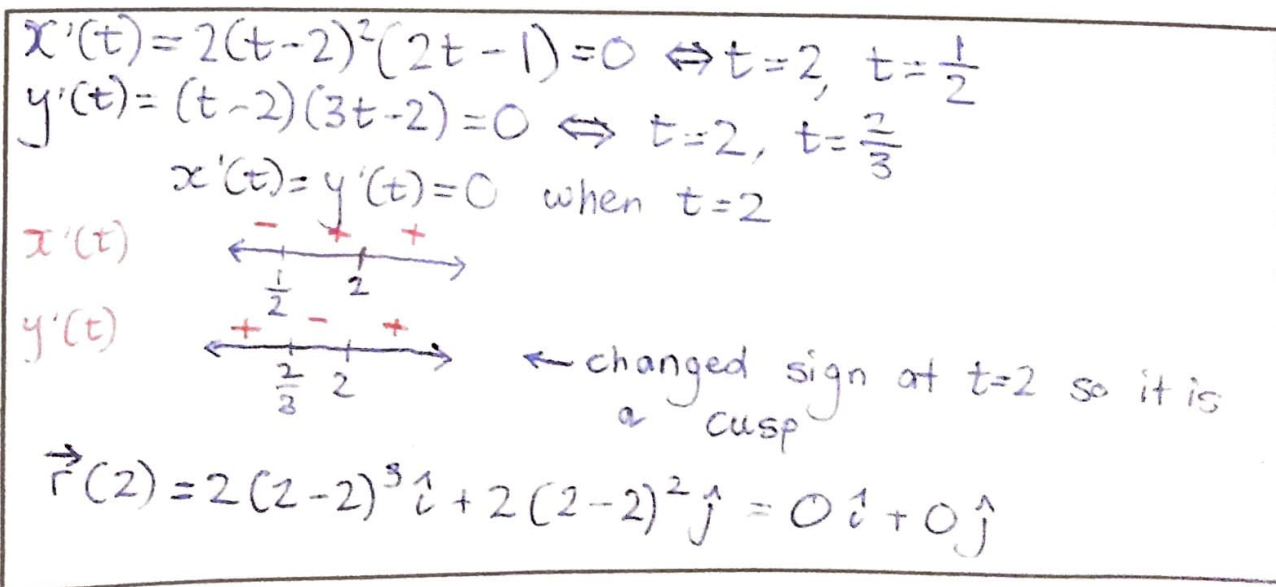 x'(t) = 2(t-2)²(2t-1) = 0 ⇔ t=2, t=1/2
y'(t) = (t-2)(3t-2) = 0 ⇔ t=2, t=2/3
x'(t) = y'(t) = 0 when t=2
x'(t) - + +
1/2 2
y'(t) + - +
2/3 2
← changed sign at t=2 so it is
a cusp
r⃗(2) = 2(2-2)³ î + 2(2-2)² ĵ = 0 î + 0 ĵ